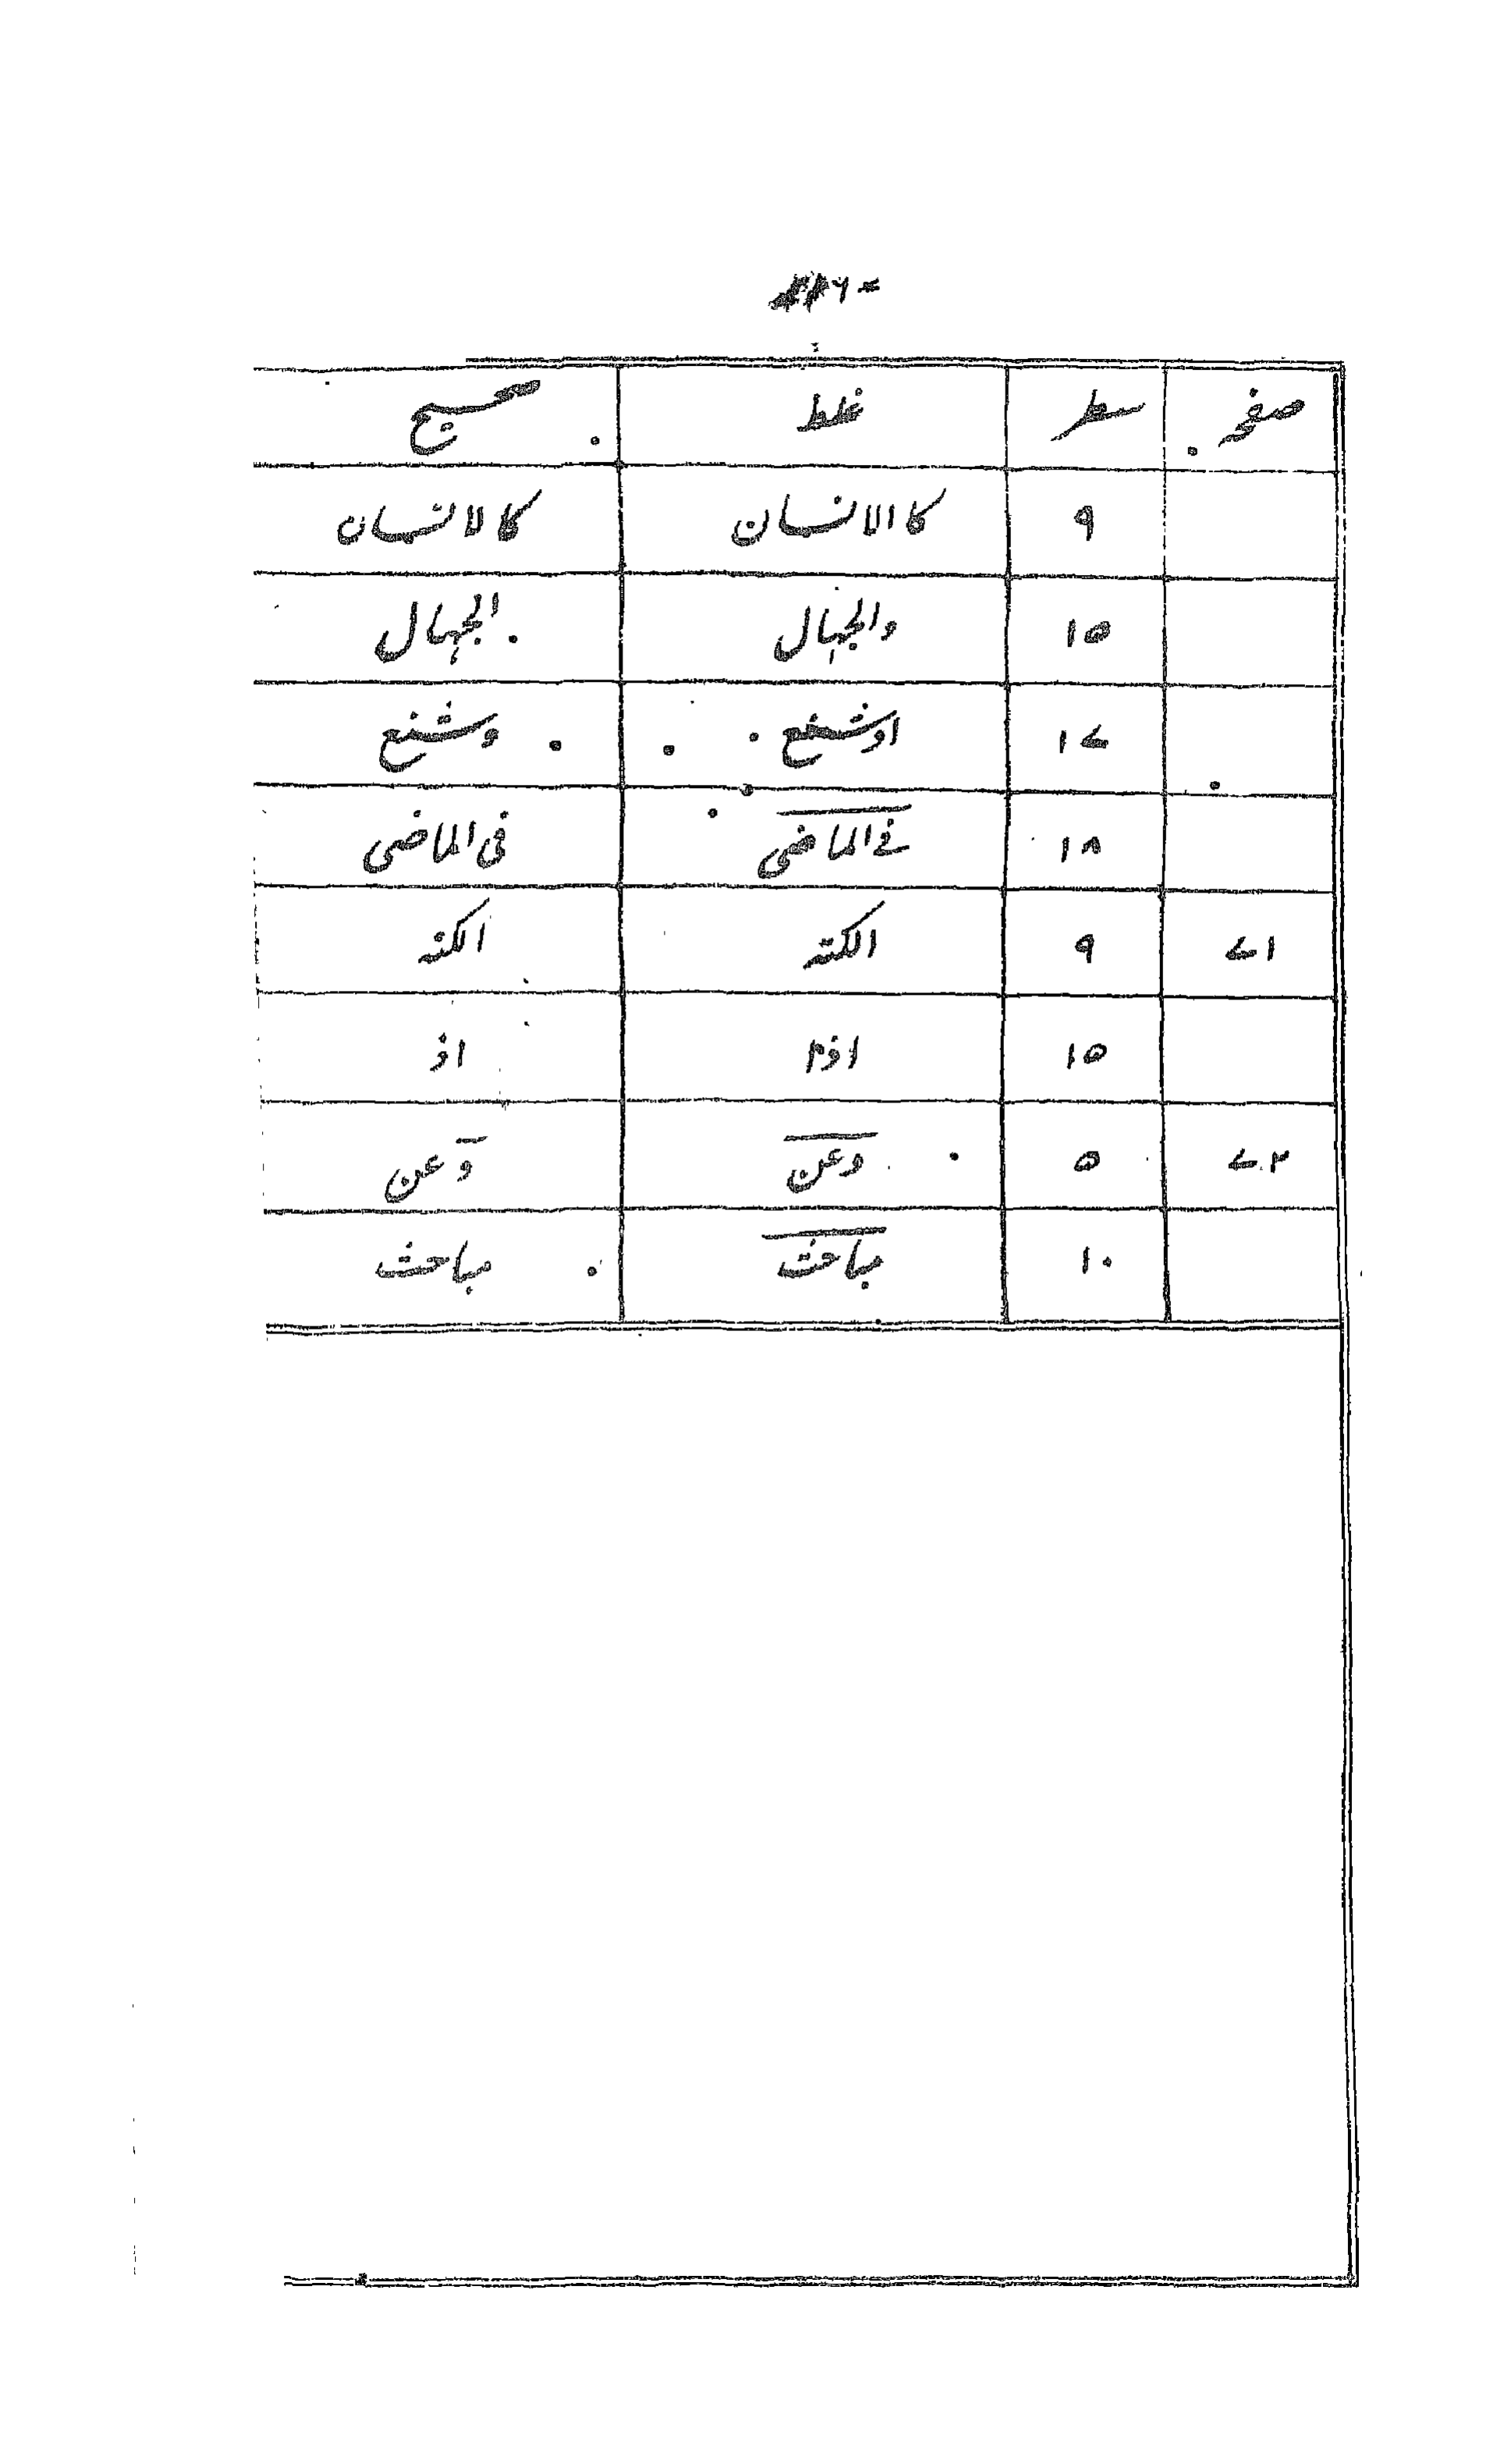 صفحہ سطر غلط صحیح
۹ کا الانسان کالانسان
۱۵ والجہال الجہال
۱۷ اوشنع وشنع
۱۸ فے الماضی فی الماضی
۷۱ ۹ الکتہ الکنہ
۱۵ اذ
۷۲ ۵ وعن وعن
۱۰ مباحث مباحث